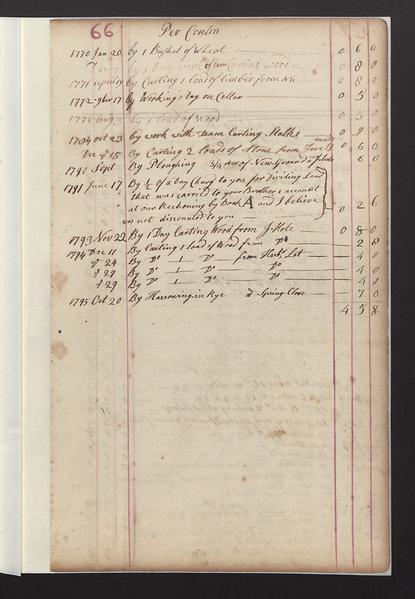 66 Per Contra
1770 Jan 20 by 1 Bushel of Wheat 0 6 0
0 8 0
1771 by Carting 1 load of timber from 0 8 0
1772 17 by Working 1 day on Cellar 0 5 0
1772 by 1 load of Wood
1784 oct 23 by work with team Carting Stalks 0 9 0
Dec ye 15 By Carting 2 Loads of Stone from 0 6 0
1790 Sept By Ploughing 3/4 Acre of New Ground 6 6
1791 June 17 By 1/2 of a boy Charg'd to you for Dividing Land
that was carried to your Brothers account
at our Reckoning by Book A and I believe
not discounted to you 0 2 6
1793 Nov 22 By 1 Day Carting Wood from J. Hole 0 8 0
1794 Dec 11 By Carting 1 load of Wood from Do 2 8
ye 24 By Do 1 Do from Lot 4 0
ye 27 By Do 1 Do Do 4 0
ye 29 By Do 1 Do Do 4 0
1795 Oct 20 By Harrowing in Rye Spring Close 7 0
4 5 8